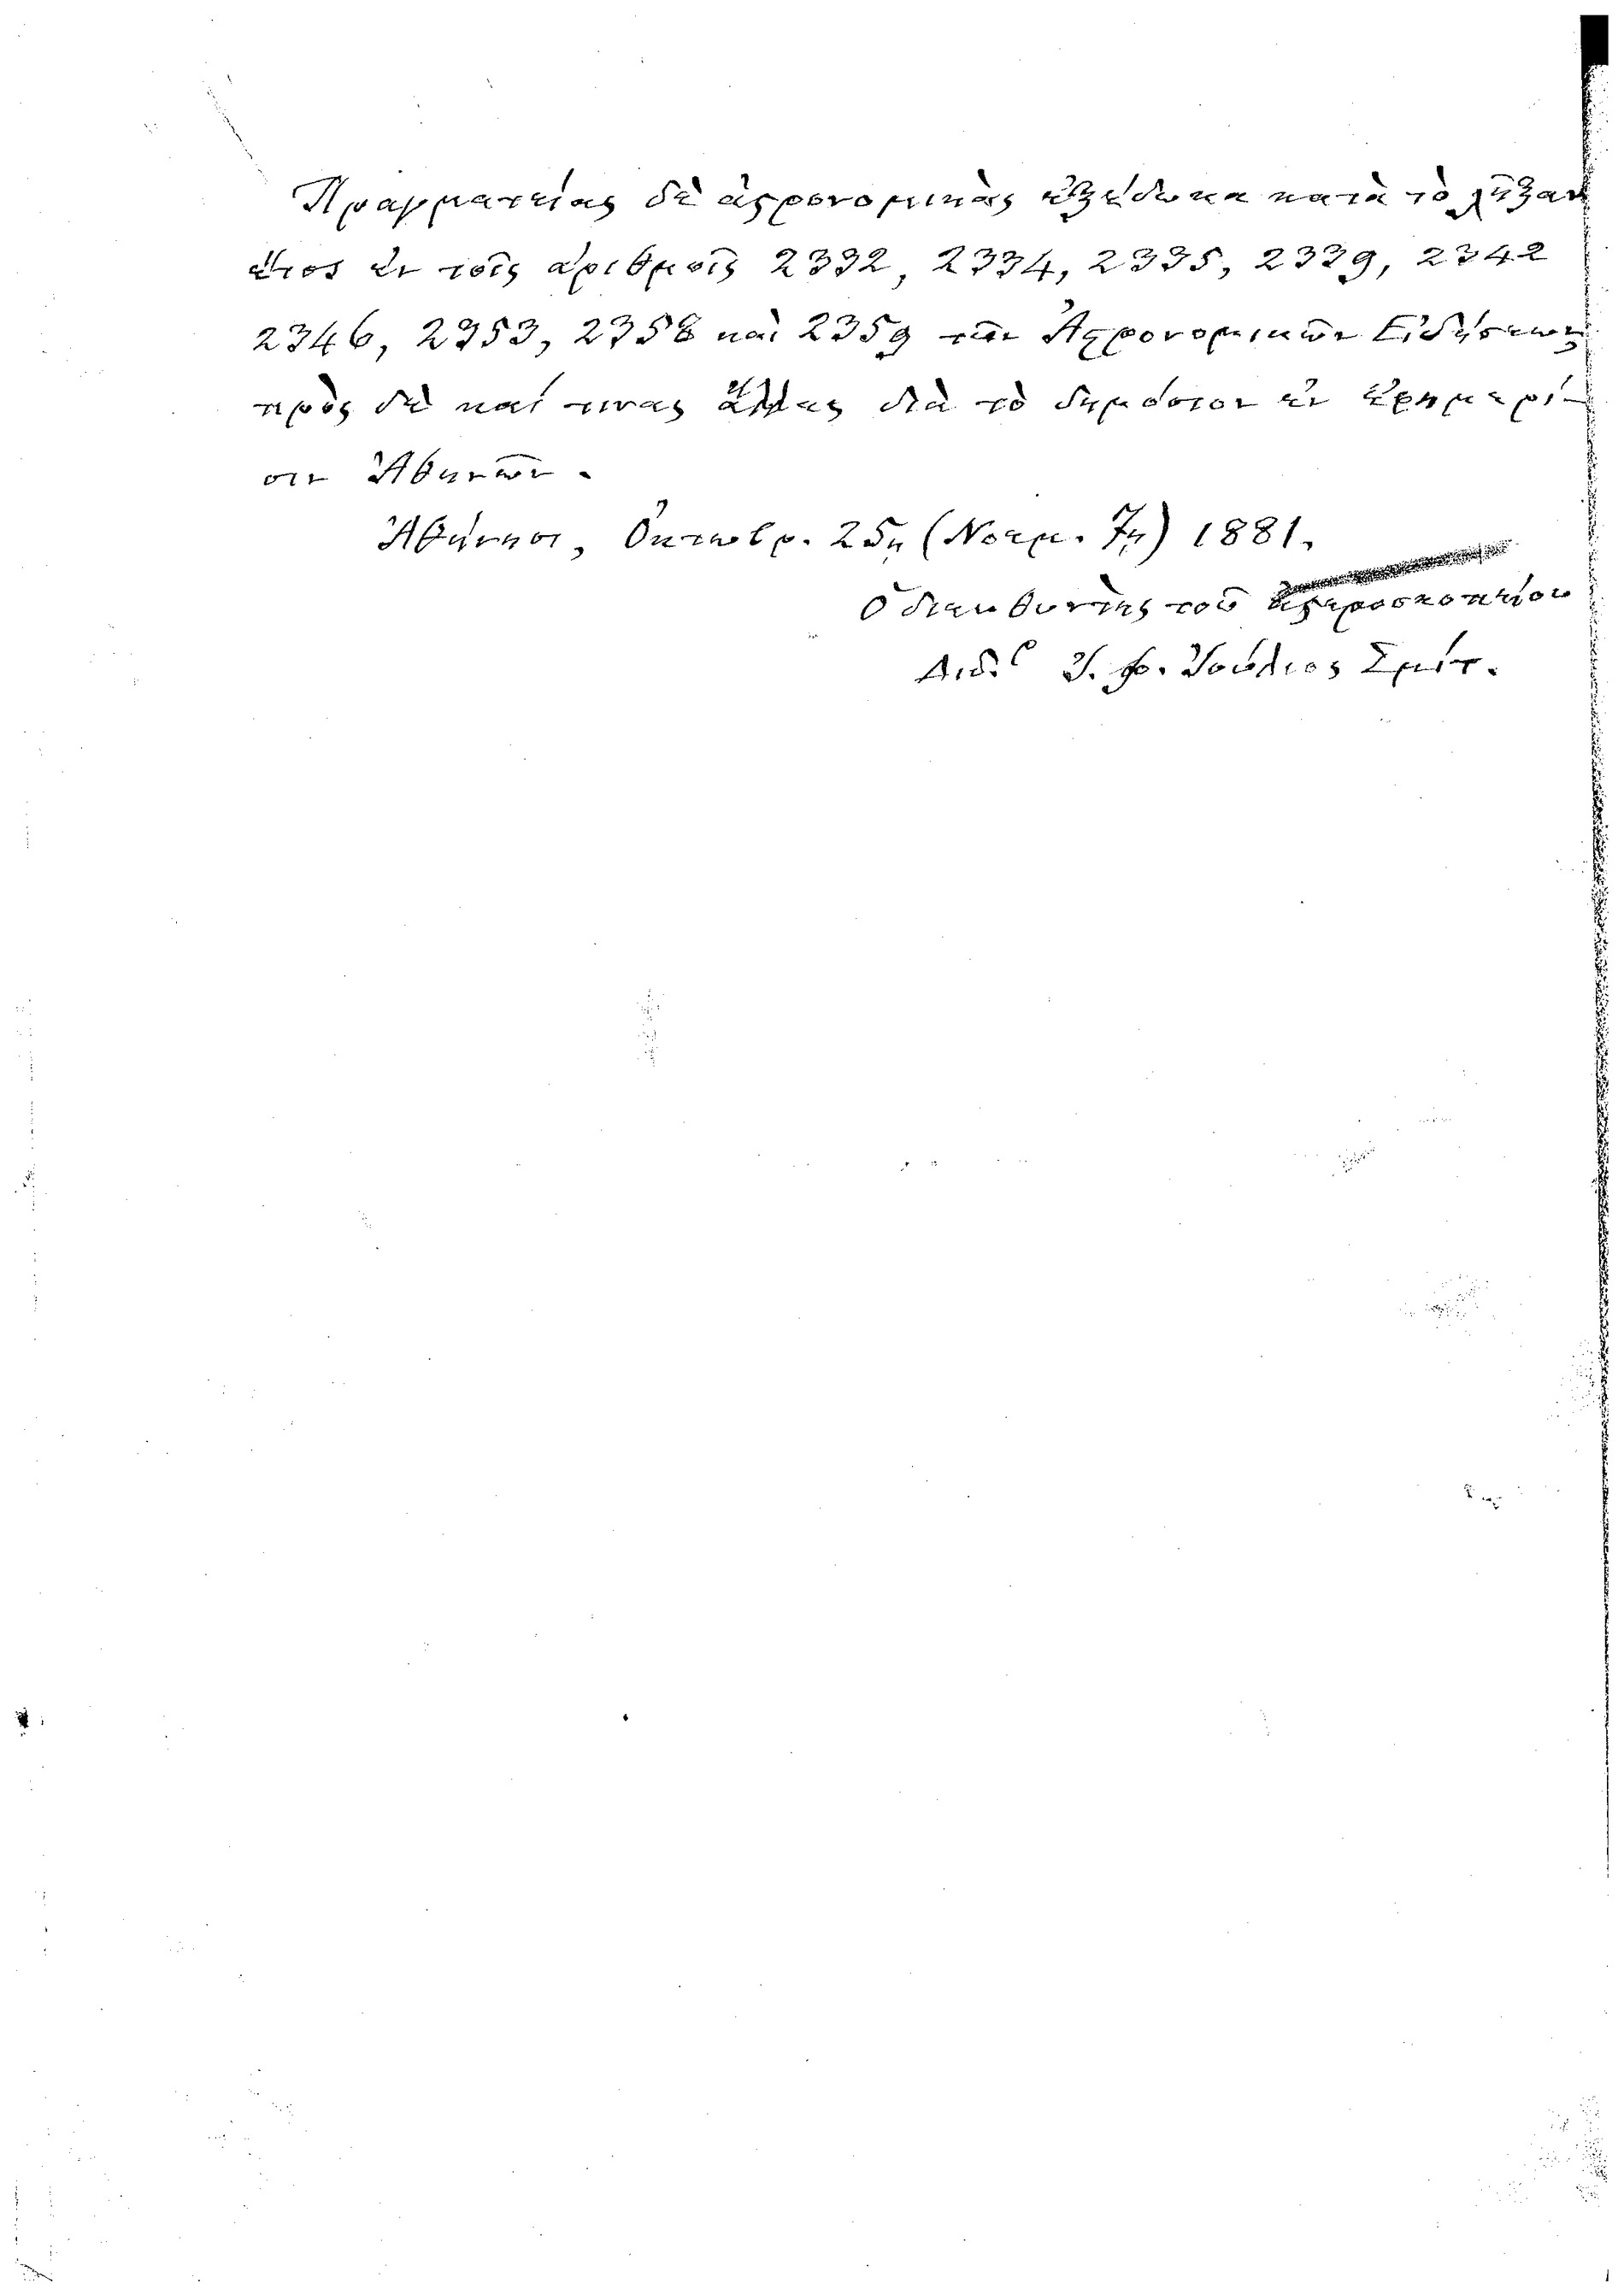 Πραγματείας δὲ ἀστρονομικὰς ἐξέδωκα κατὰ τὸ λῆξαν
ἔτος ἐν τοῖς ἀριθμοῖς 2332, 2334, 2335, 2339, 2342
2346, 2353, 2358 καὶ 2359 τῶν Ἀστρονομικῶν Εἰδήσεων
πρὸς δὲ καί τινας ἄλλας διὰ τὸ δημόσιον ἐν ἐφημερί-
σιν Ἀθηνῶν.
Ἀθήνησι, Ὀκτωβρ. 25ῃ (Νοεμ. 7ῃ) 1881.
Ὁ διευθυντὴς τοῦ ἀστεροσκοπείου
Ι. Φ. Ἰούλιος Σμίτ.